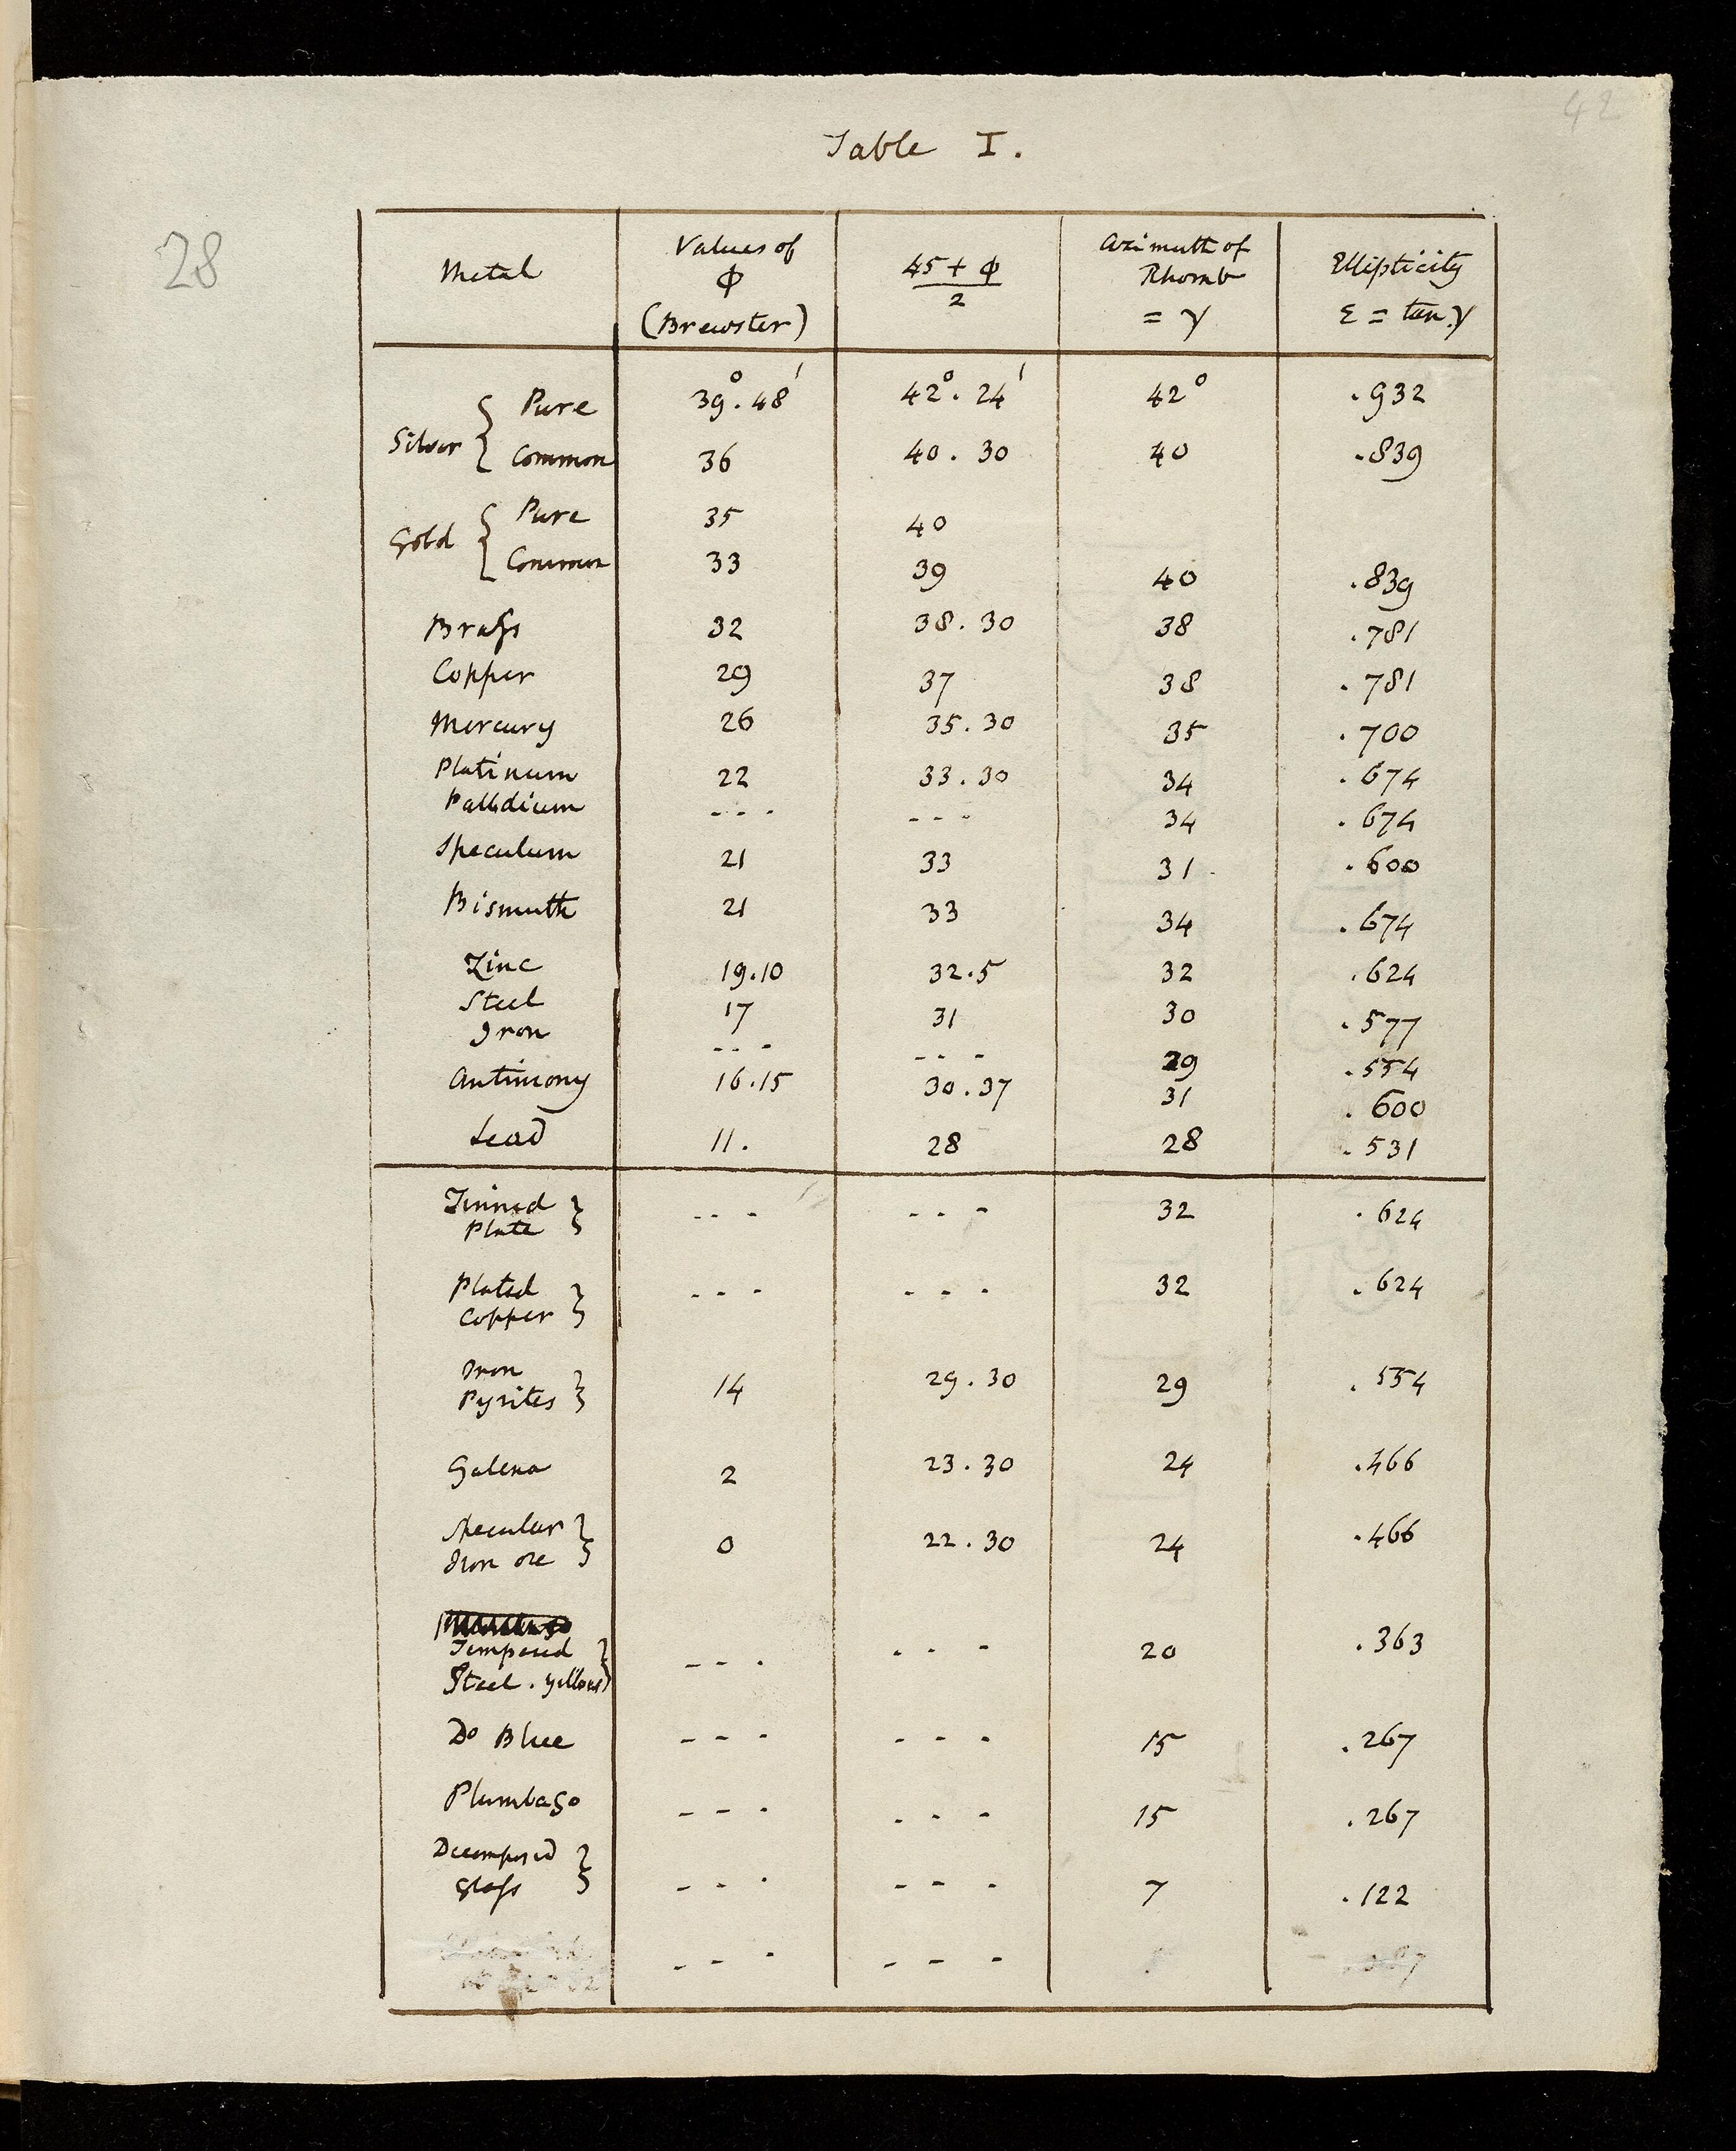 42
Table I.
28
Metal | Values of Φ (Brewster) | 45 + Φ / 2 | Azimuth of Rhomb = γ | Ellipticity ε = tan. γ
Silver { Pure | 39°. 48' | 42°. 24' | 42° | .932
Common | 36 | 40. 30 | 40 | .839
Gold { Pure | 35 | 40
Common | 33 | 39 | 40 | .839
Braſs | 32 | 38. 30 | 38 | .781
Copper | 29 | 37 | 38 | .781
Mercury | 26 | 35. 30 | 35 | .700
Platinum | 22 | 33. 30 | 34 | .674
Palladium | - - - | - - - | 34 | .674
Speculum | 21 | 33 | 31 | .600
Bismuth | 21 | 33 | 34 | .674
Zinc | 19.10 | 32.5 | 32 | .624
Steel | 17 | 31 | 30 | .577
Iron | - - - | - - - | 29 | .554
Antimony | 16.15 | 30.37 | 31 | .600
Lead | 11. | 28 | 28 | .531
Tinned Plate } | - - - | - - - | 32 | .624
Plated Copper } | - - - | - - - | 32 | .624
Iron Pyrites } | 14 | 29. 30 | 29 | .554
Galena | 2 | 23. 30 | 24 | .466
Specular Iron ore } | 0 | 22. 30 | 24 | .466
Tempered Steel. yellow } | - - - | - - - | 20 | .363
Do Blue | - - - | - - - | 15 | .267
Plumbago | - - - | - - - | 15 | .267
Decomposed Glaſs } | - - - | - - - | 7 | .122
- - - | - - -